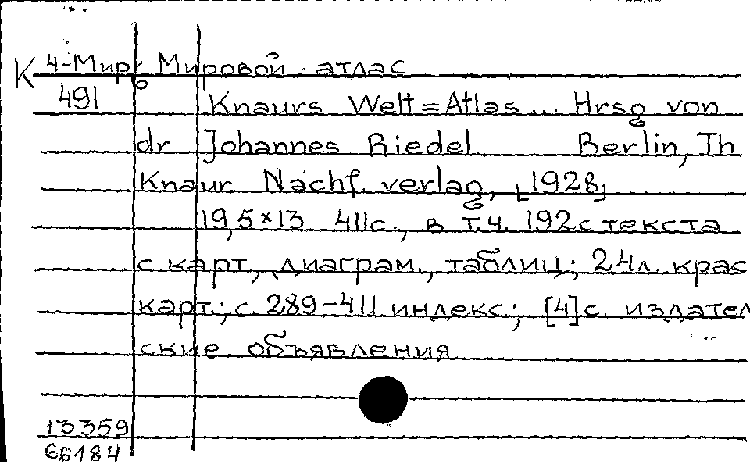 К 4-Мир Мировой атлас
491 Knaurs Welt=Atlas... Hrsg von
dr Johannes Riedel Berlin, Th
Knaur Nachf. verlag, [1928]
19,5×13 411с., в т.ч. 192с текста
с карт, диаграм., таблиц; 24л. крас
карт.; с. 289-411 индекс; [4]с. издател
ские объявления
13359
66184